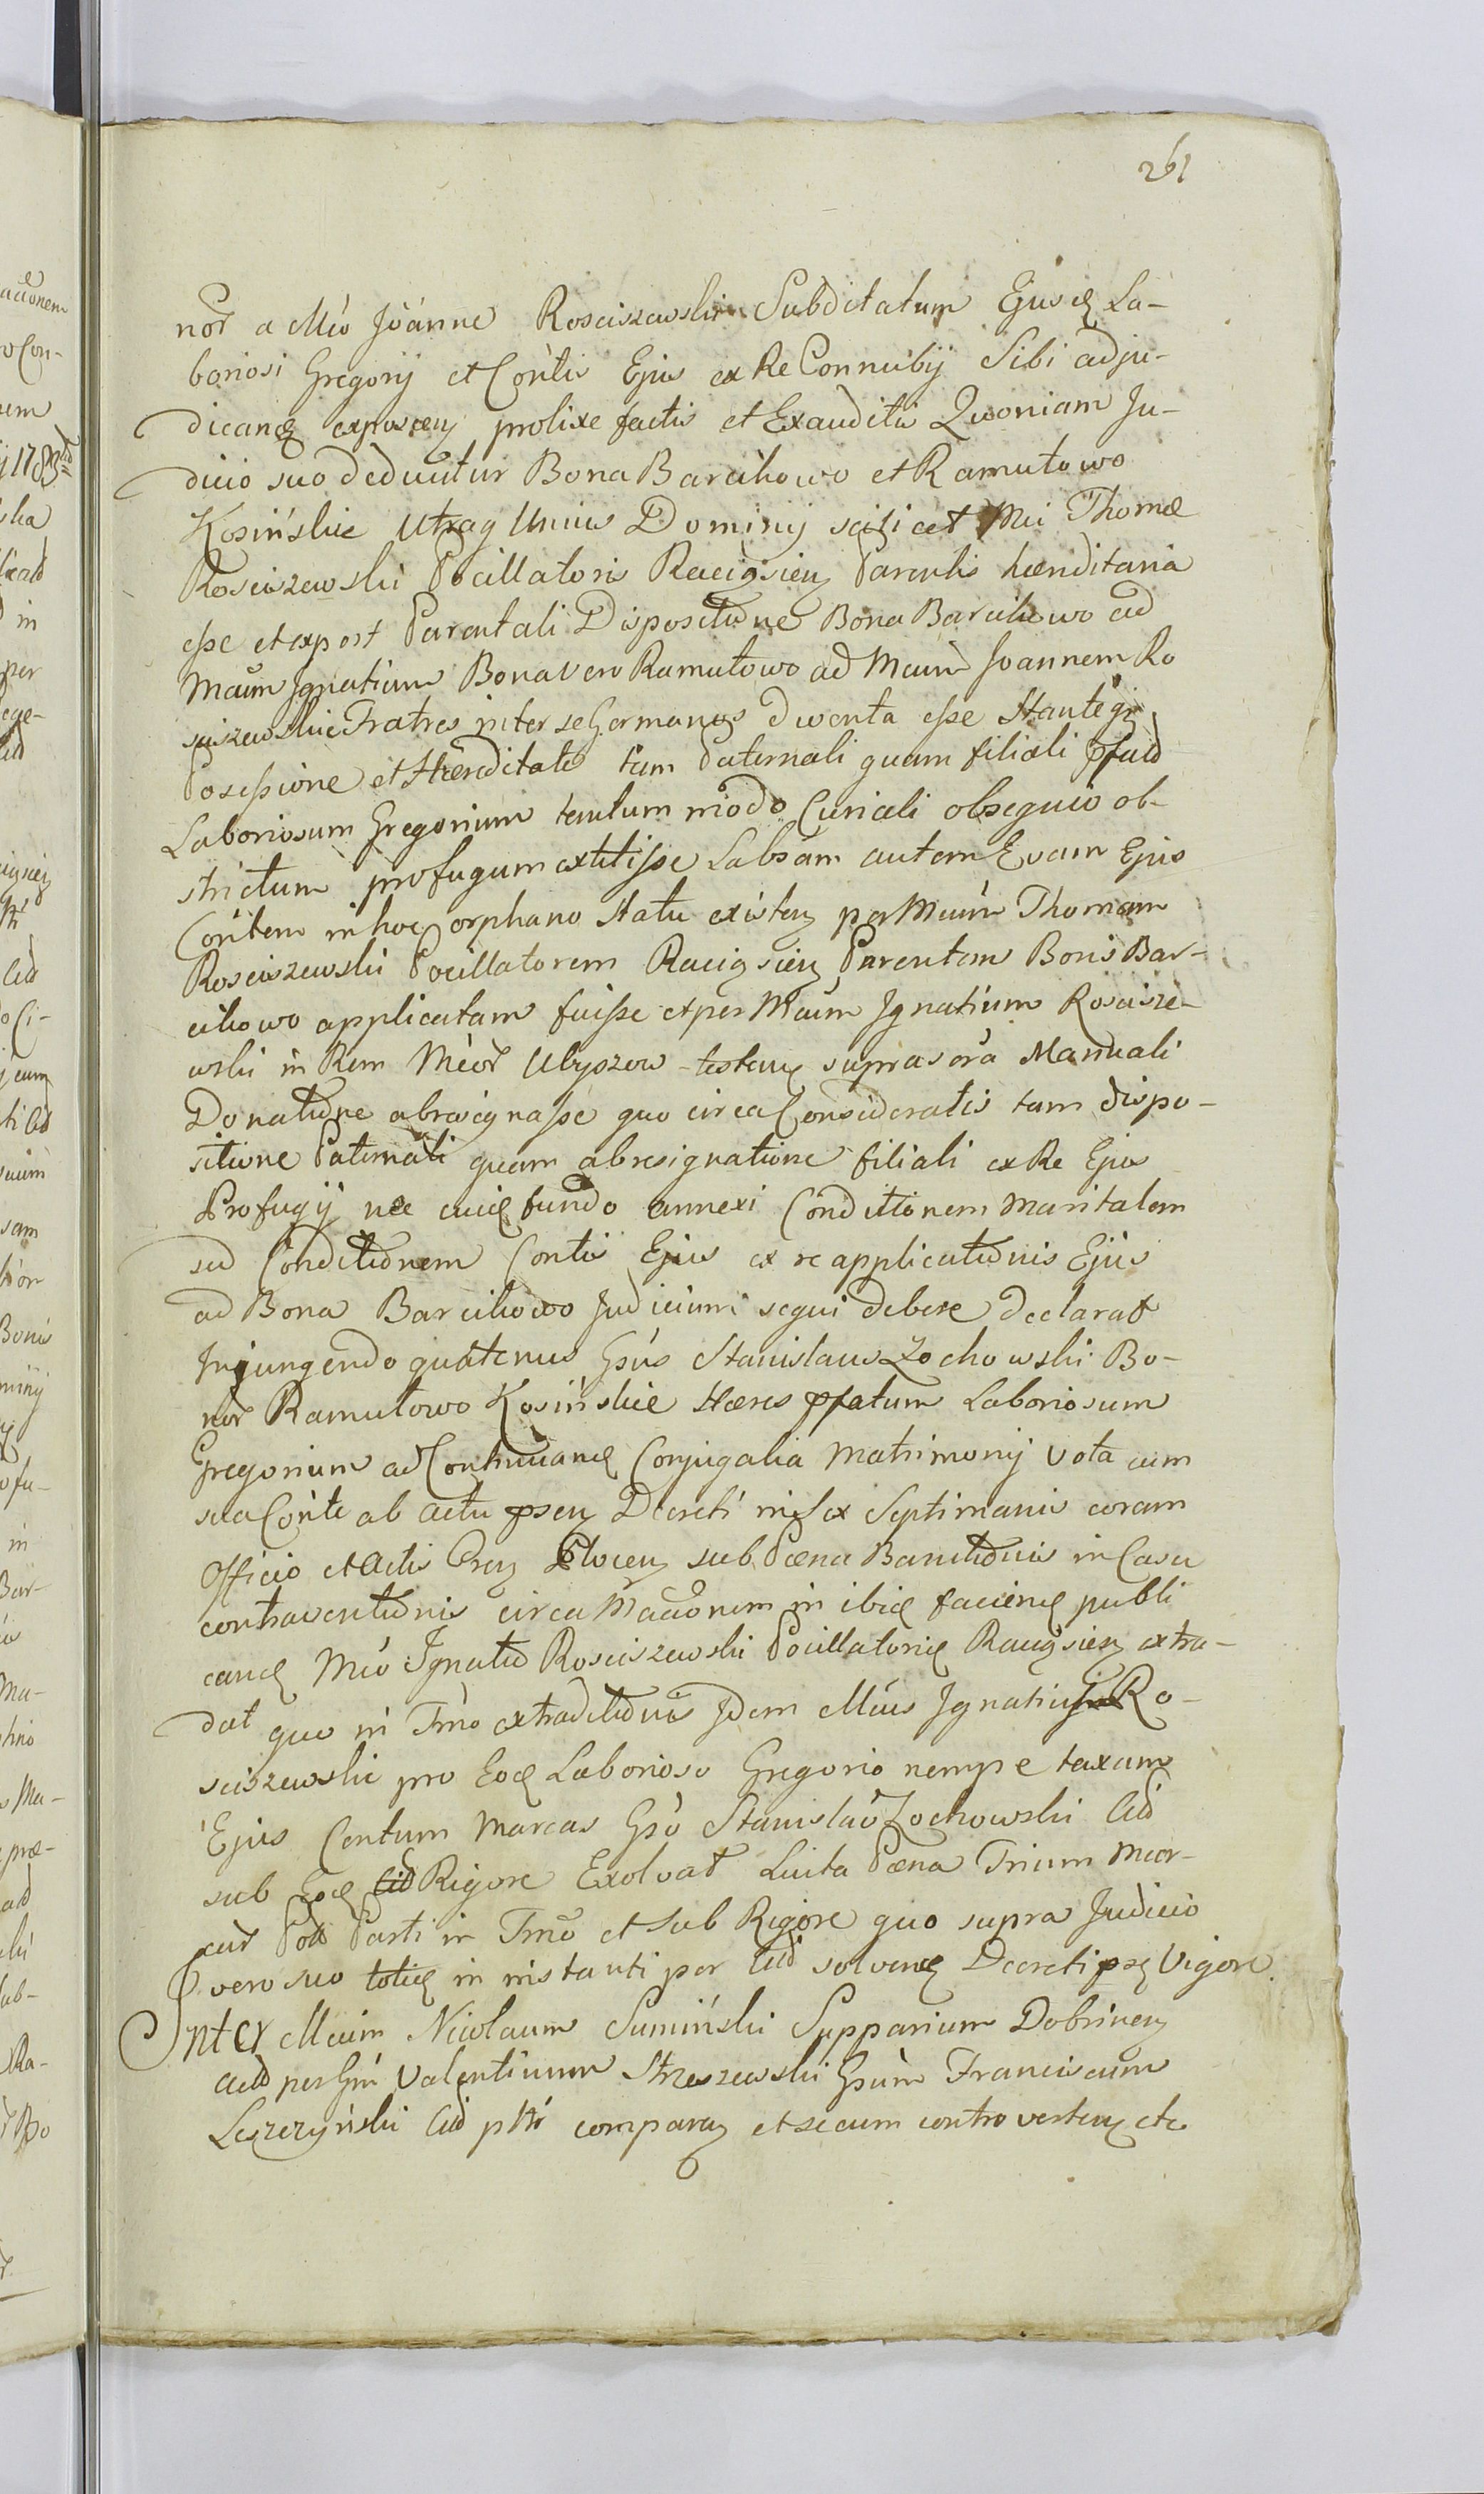 261
nor a Mco Joanne Rosciszewski Subditatum Ejusq La-
boriosi Gregorij et Contis Ejus ex Re Connubij Sibi adju-
dicanq exposcen prolixe factis et Exauditis Quoniam Ju-
dicio suo deducitur Bona Barcikowo et Ramutowo
Kosińskie utraq Unius Dominij scilicet Mci Thomæ
Rosciszewski Pocillatoris Raciąsien Parentis hæreditaria
esse et expost Parentali Dispositione Bona Barcikowo ad
Mcum Ignatium Bona vero Ramutowo ad Mcum Joannem Ro
sciszewskie Fratres inter se Germanos deventa esse Stante gr
Possessione et Hæreditate tam Paternali quam filiali pfatd
Laboriosum Gregorium tantum modo Curiali obsequio ob-
strictum profugum extitisse Labsam autem Evam Ejus
Contem in hoc orphano Statu existen per Mcum Thomam
Rosciszewski Pocillatorem Raciąsien Parentem Bonis Bar-
cikowo applicatam fuisse et per Mcum Ignatium Roscisze-
wski in Rem Mcor Ulyszow testenq supra sora Manuali
Donatione abresignasse quo circa Consideratis tam dispo-
sitione Paternali quam abresignatione filiali ex Re Ejus
Profugij nec cuiq fundo annexi Conditionem Maritalem
sed Conditionem Contis Ejus ex re applicationis Ejus
ad Bona Barcikowo Judicium sequi debere declarat
Injungendo quatenus Gsus Stanislaus Zochowski Bo-
nor Ramutowo Kosińskie Hæres pfatum Laboriosum
Gregorium ad Continuanq Conjugalia Matrimonij Vota cum
sua Conte ab actu psen Decreti in Sex Septimanis coram
Officio et Actis Cren Plocen sub Pæna Banitionis in Casu
contraventionis circa Macionem in ibiq facienq publi
canq Mco Ignatio Rosciszewski Pocillatoriq Raciąsien extra-
dat quo in Tmo extraditionis Idem Mcus Ignatius Ro-
sciszewski pro Eoq Laborioso Gregorio nempe taxam
Ejus Centum Marcas Gso Stanislao Zochowski Cid
sub Eoq Cid Rigore Exolvat Luita Pæna Trium Mar-
car Parti in Tmo et Sub Rigore quo supra Judicio
vero suo totiq in instanti per Cid solvenq Decreti psn Vigore
Inter Mcum Nicolaum Sumiński Supparium Dobrinen
Acid per Gm Valentinum Strzeszewski Gsum Franciscum
Leszczyński Cid pttr comparen et secum controverten etc